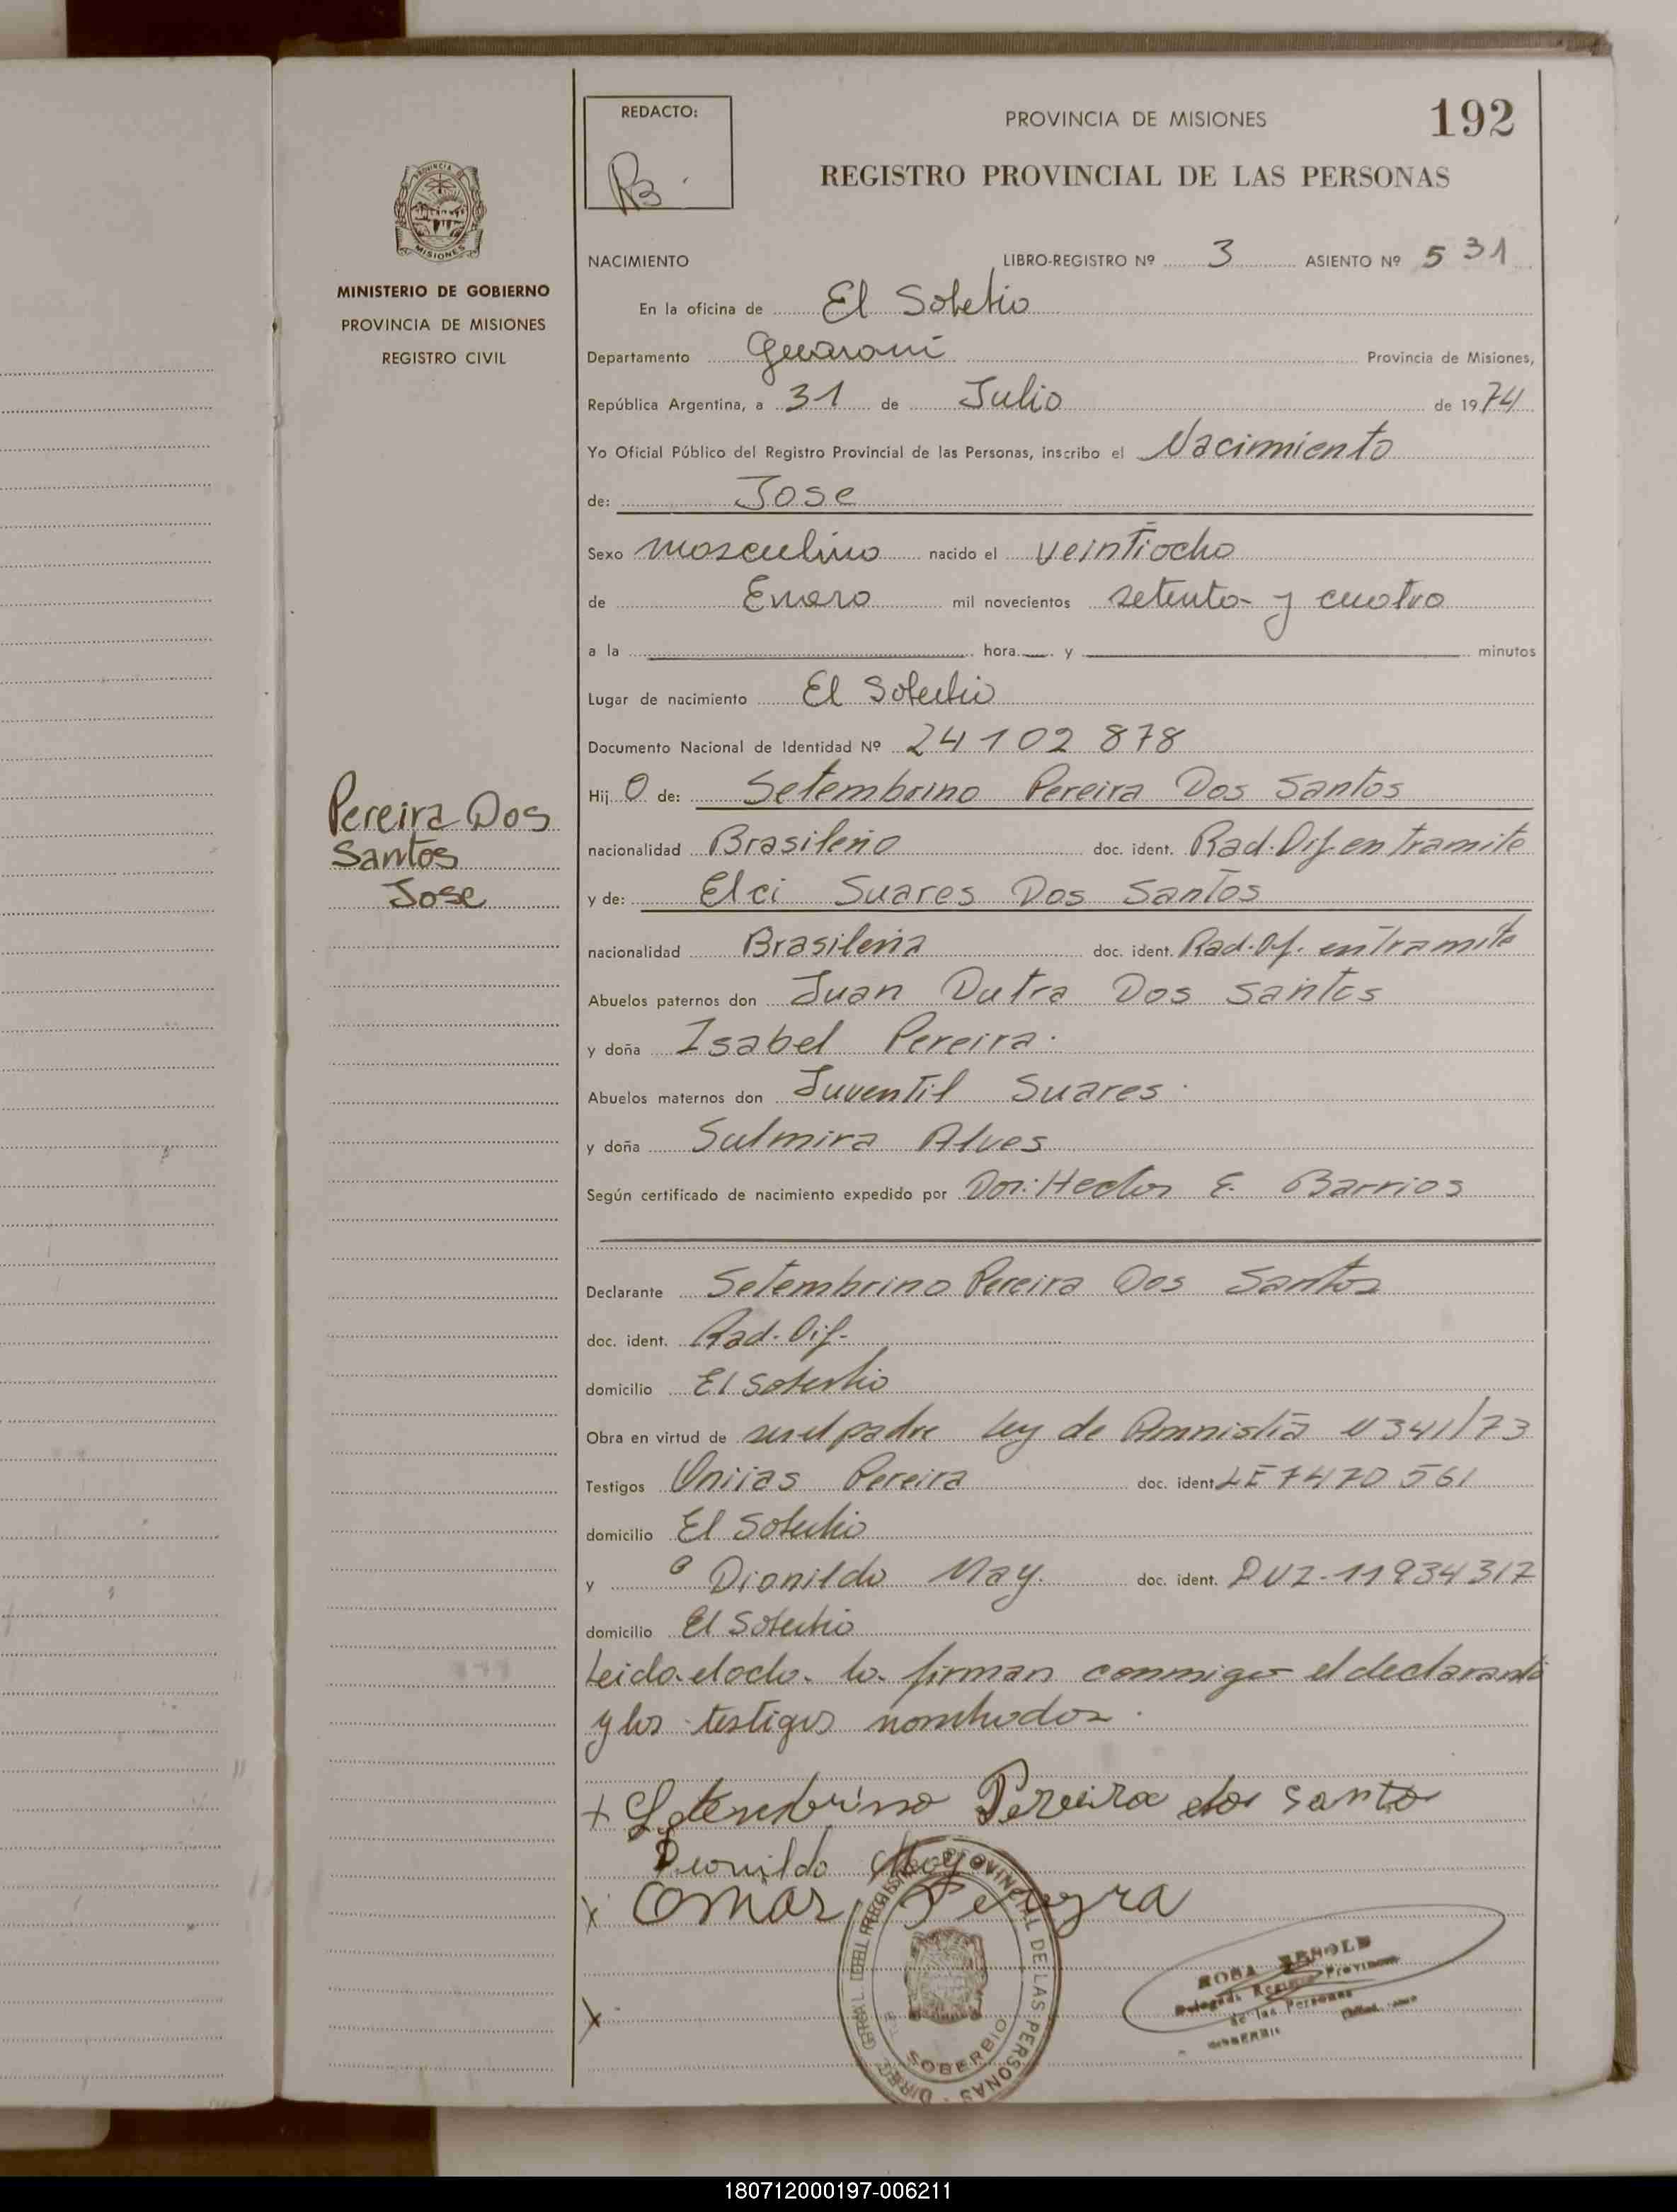 REDACTO:
PROVINCIA DE MISIONES
192
REGISTRO PROVINCIAL DE LAS PERSONAS
MINISTERIO DE GOBIERNO
PROVINCIA DE MISIONES
REGISTRO CIVIL
NACIMIENTO LIBRO-REGISTRO Nº 3 ASIENTO Nº 531
En la oficina de El Soberbio
Departamento Guarani Provincia de Misiones,
República Argentina, a 31 de Julio de 1974
Yo Oficial Público del Registro Provincial de las Personas, inscribo el Nacimiento
de: Jose
Sexo masculino nacido el veintiocho
de Enero mil novecientos setenta y cuatro
a la hora y minutos
Lugar de nacimiento El Soberbio
Documento Nacional de Identidad Nº 24102878
Pereira Dos
Santos
Jose
Hij o de: Setembrino Pereira Dos Santos
nacionalidad Brasileño doc. ident. Rad. Dif. en tramite
y de: Elci Suares Dos Santos
nacionalidad Brasileña doc. ident. Rad. Df. en tramite
Abuelos paternos don Juan Dutra Dos Santos
y doña Isabel Pereira.
Abuelos maternos don Juventil Suares.
y doña Sulmira Alves
Según certificado de nacimiento expedido por Dor: Hector E. Barrios
Declarante Setembrino Pereira Dos Santos
doc. ident. Rad. Dif.
domicilio El Soberbio
Obra en virtud de ser el padre ley de Amnistia N 341/73
Testigos Pereira doc. ident. LE 7470561
domicilio El Soberbio
y Dionildo May. doc. ident. DUZ-11934317
domicilio El Soberbio
Leida el acta. la firman conmigo el declarante
y los testigos nombrados.
+ Setembrino Pereira dos santo
Deonildo May
x Omar Pereyra
x
DIREC. GENERAL DEL REGISTRO PROVINCIAL DE LAS PERSONAS
SOBERBIO
ROSA
de las Personas
180712000197-006211